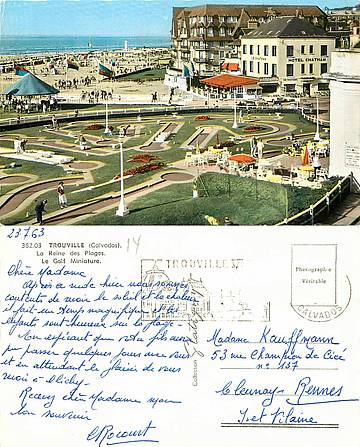 HOTEL CHATHAM
23763
382.03 TROUVILLE (Calvados).
La Reine des Plages.
Le Golf Miniature.
14
TROUVILLE S/
Photographie
Véritable
CALVADOS
Chère Madame
Après a nous sommes
contents de voir le soleil et la chaleur
il fait un temps magnifique et les
enfants sont heureux sur la plage -
En espérant que votre fils aura
pu passer quelques jours avec vous
et en attendant le plaisir de vous
voir à Clichy.
Recevez chère Madame mon
bon souvenir
Madame Kauffmann
53 rue Champion de Cicé
n° 137
Cleunay - Rennes
Ile et Vilaine